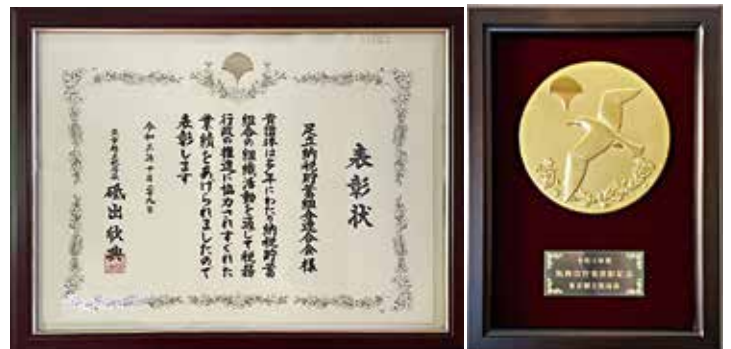 表彰状
足立納税貯蓄組合連合会様
貴団体は多年にわたり納税貯蓄
組合の組織活動を通して税務
行政の推進に協力されすぐれた
業績をあげられましたので
表彰します
令和三年十月二十九日
東京都主税局長 砥出欣典
東京都主税局長